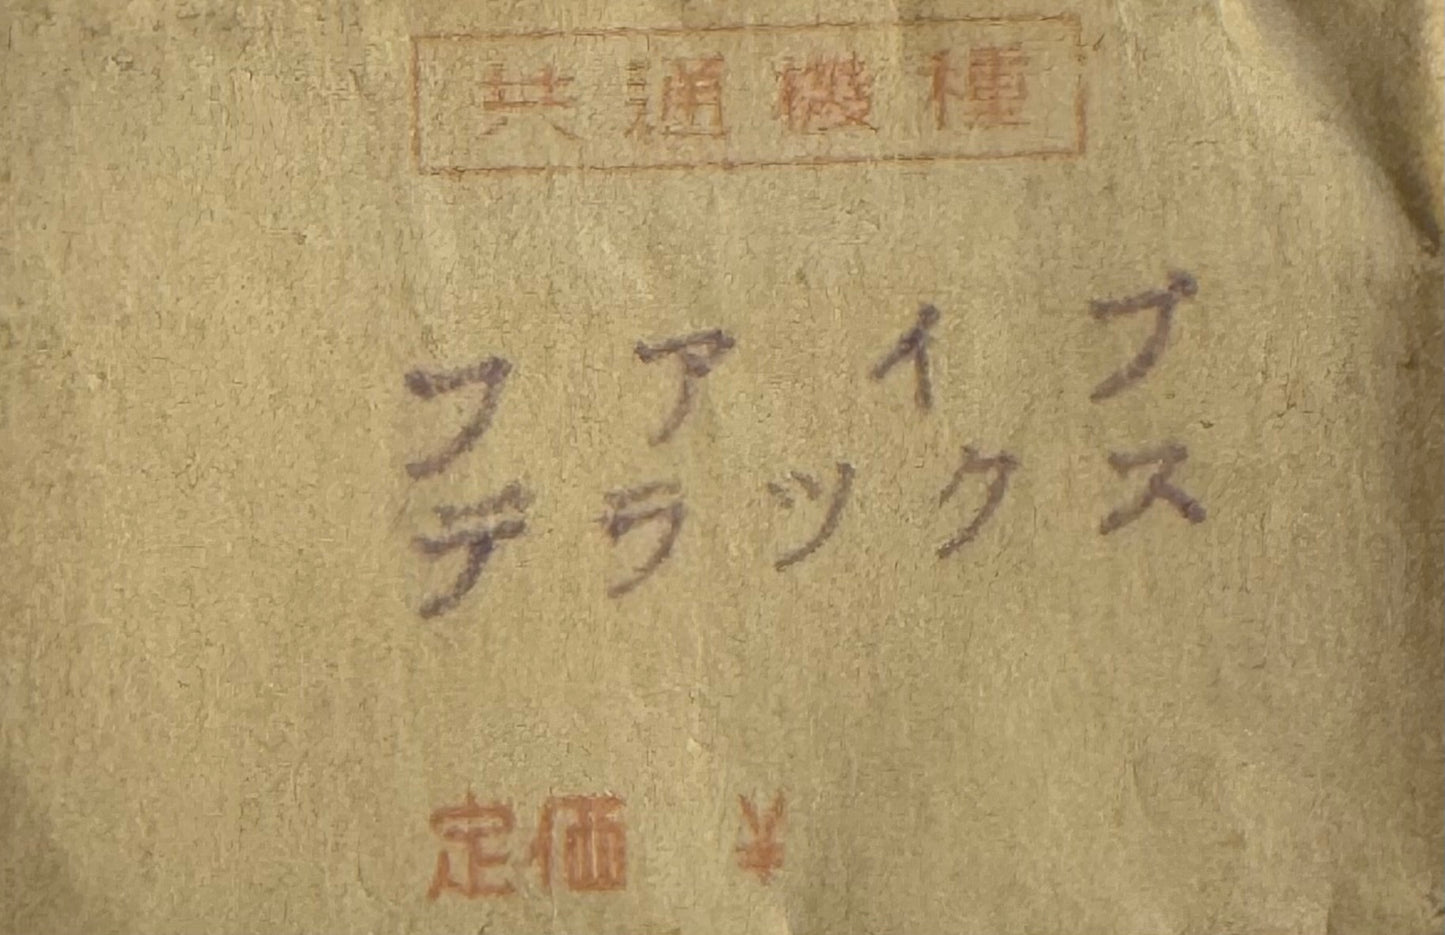 共通機種
ファイブ
デラックス
定価 ¥